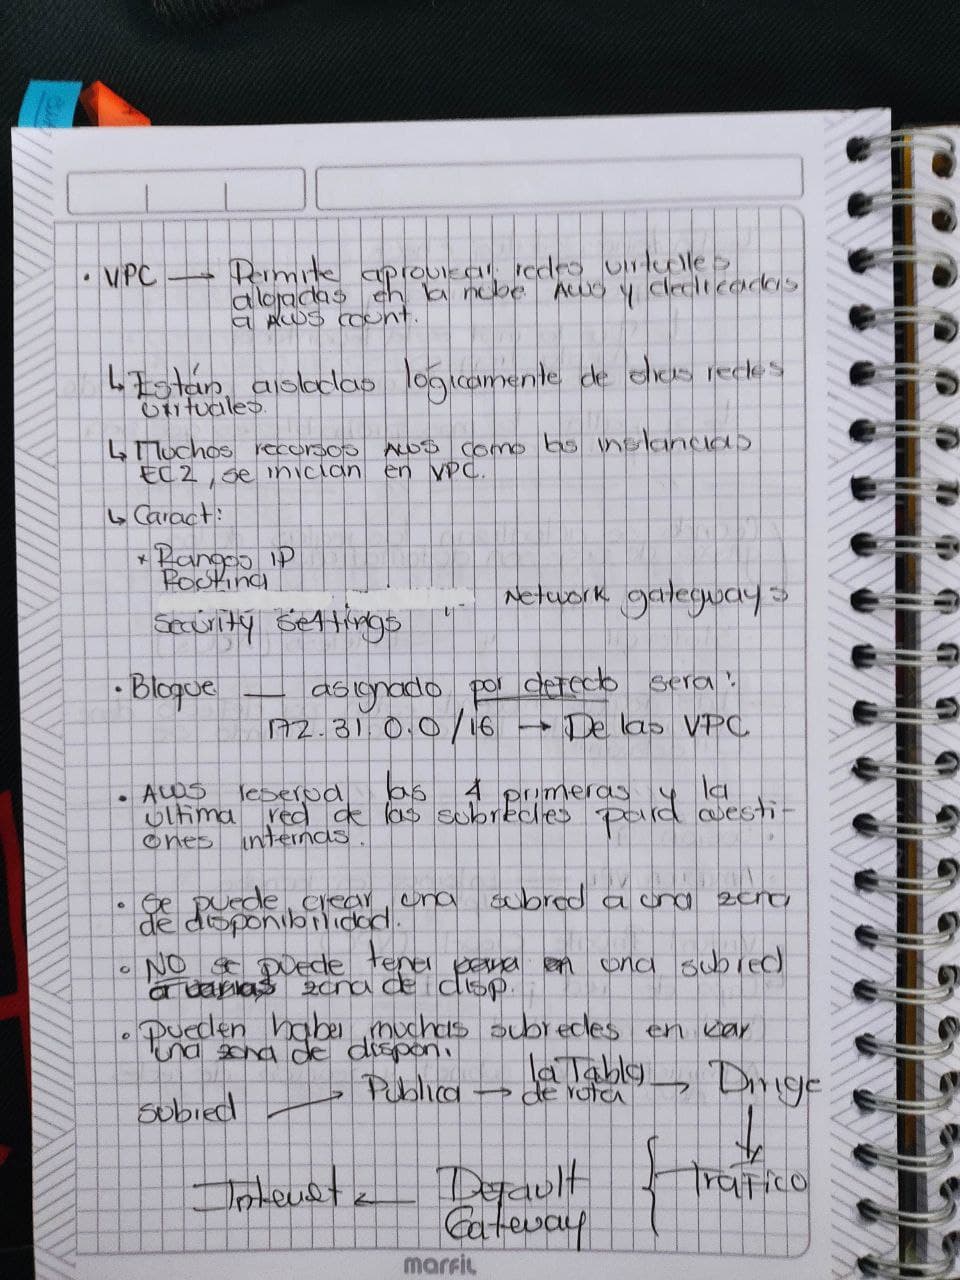 • VPC → Permite aprovisar redes virtuales
alojadas en la nube AWS y dedicadas
a AWS count.
↳ Están aisladas lógicamente de otras redes
virtuales.
↳ Muchos recursos AWS como las instancias
EC2, se inician en VPC.
↳ Caract:
* Rangos IP
Routing
Network gategways
Security Settings
• Bloque — asignado por defecto sera:
172.31.0.0/16 → De las VPC
• AWS reserva las 4 primeras y la
última red de las subredes para cuesti-
ones internas.
• Se puede crear una subred a una zona
de disponibilidad.
• NO se puede tener en una subred
a varias zona de disp.
• Pueden haber muchas subredes en
una zona de dispon.
subred → Publica → la Tabla de ruta → Dirige
↓
Internet ← Default Gateway { Tráfico
marfil